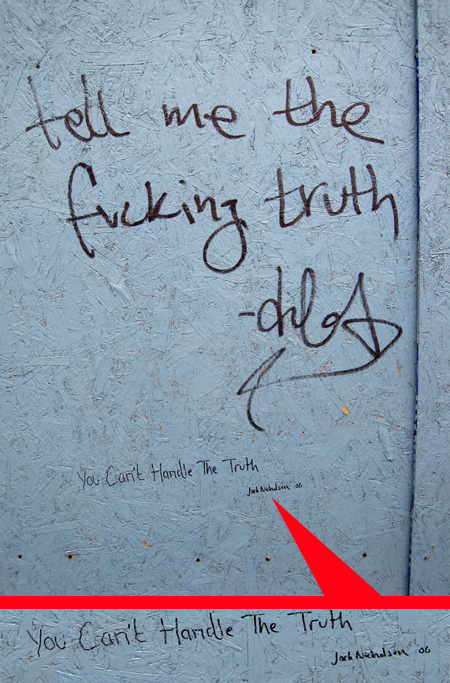 tell me the
fucking truth
You Can't Handle The Truth
Jack Nicholson '06
You Can't Handle The Truth
Jack Nicholson '06